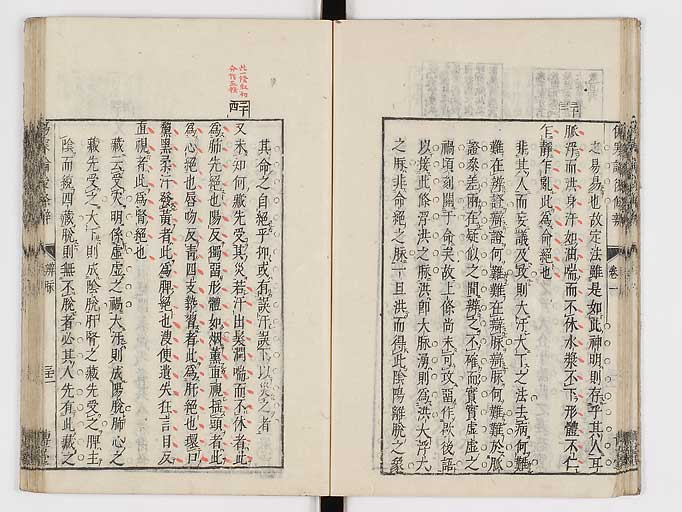 之易易也故定法雖是如此神明則存乎其人耳
脈浮而洪身汗如油喘而不休水漿不下形體不仁
乍靜乍亂此爲命絕也
非其人而妄議及致則大汗大下之法去病何難
難在辨證辨證何難難在辨脉辨脉何難難於脈
證參差兩在疑似之間辨之不確而實實虛虛之
禍頃刻關乎命矣故上條尚未可攻畱作歇後語
以接此條浮洪之脉洪即大脉湧則爲洪大浮大
之脉非命絕之脉一旦洪而得此陰陽離脫之象
卷一
其命之自絕乎抑或有誤汗誤下以災之者
又未知何藏先受其災若汗出髮潤喘而不休者此
爲肺先絕也陽反獨畱形體如烟薰直視搖頭者此
爲心絕也唇吻反青四支漐習者此爲肝絕也環口
黧黑柔汗發黃者此爲脾絕也溲便遺失狂言目反
直視者此爲腎絕也
藏云受災明係虛虛之禍大汗則成陽脫肺心之
藏先受之大下則成陰脫肝腎之藏先受之脾主
陰而統四藏脫則無不脫者必其人先有此藏之
辨脉